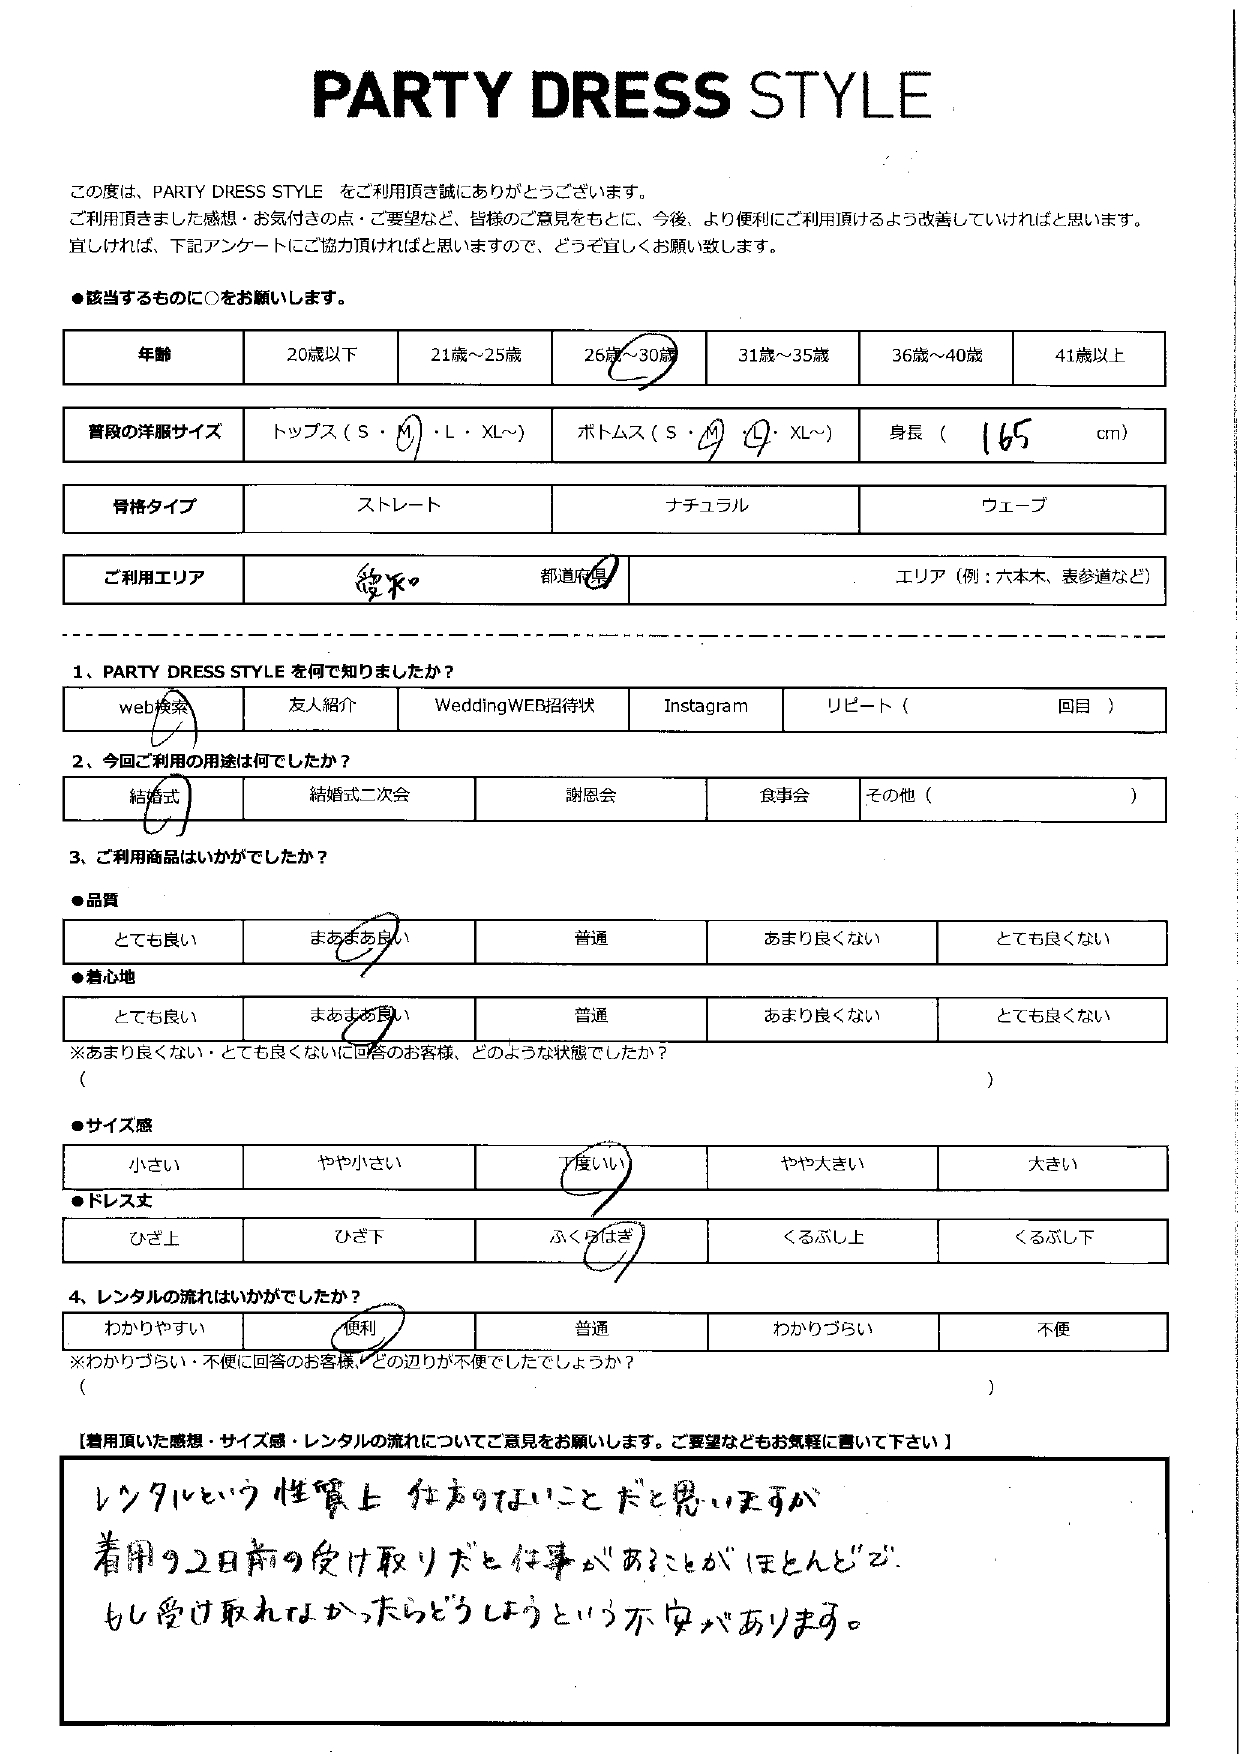 PARTY DRESS STYLE
この度は、PARTY DRESS STYLE をご利用頂き誠にありがとうございます。
ご利用頂きました感想・お気付きの点・ご要望など、皆様のご意見をもとに、今後、より便利にご利用頂けるよう改善していければと思います。
宜しければ、下記アンケートにご協力頂ければと思いますので、どうぞ宜しくお願い致します。
●該当するものに○をお願いします。
年齢 20歳以下 21歳～25歳 26歳～30歳 31歳～35歳 36歳～40歳 41歳以上
普段の洋服サイズ トップス ( S ・ M ・ L ・ XL～) ボトムス ( S ・ M ・ L ・ XL～) 身長 ( 165 cm)
骨格タイプ ストレート ナチュラル ウェーブ
ご利用エリア 愛知 都道府県 エリア（例：六本木、表参道など）
1、PARTY DRESS STYLE を何で知りましたか？
web検索 友人紹介 WeddingWEB招待状 Instagram リピート（ 回目 ）
2、今回ご利用の用途は何でしたか？
結婚式 結婚式二次会 謝恩会 食事会 その他（ ）
3、ご利用商品はいかがでしたか？
●品質
とても良い まあまあ良い 普通 あまり良くない とても良くない
●着心地
とても良い まあまあ良い 普通 あまり良くない とても良くない
※あまり良くない・とても良くないに回答のお客様、どのような状態でしたか？
（ ）
●サイズ感
小さい やや小さい 丁度いい やや大きい 大きい
●ドレス丈
ひざ上 ひざ下 ふくらはぎ くるぶし上 くるぶし下
4、レンタルの流れはいかがでしたか？
わかりやすい 便利 普通 わかりづらい 不便
※わかりづらい・不便に回答のお客様、どの辺りが不便でしたでしょうか？
（ ）
【着用頂いた感想・サイズ感・レンタルの流れについてご意見をお願いします。ご要望などもお気軽に書いて下さい 】
レンタルという性質上 仕方のないことだと思いますが
着用の2日前の受け取りだと仕事があることがほとんどで.
もし受け取れなかったらどうしようという不安があります。